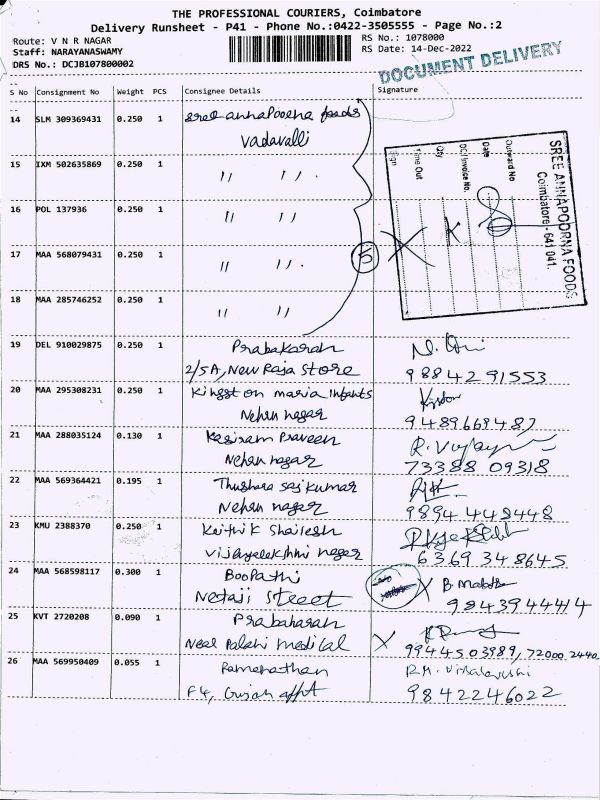 THE PROFESSIONAL COURIERS, Coimbatore
Delivery Runsheet - P41 - Phone No.:0422-3505555 - Page No.:2
Route: V N R NAGAR
Staff: NARAYANASWAMY
DRS No.: DCJB107800002
RS No.: 1078000
RS Date: 14-Dec-2022
DOCUMENT DELIVERY
S No Consignment No Weight PCS Consignee Details Signature
14 SLM 309369431 0.250 1 Sree annapoorna foods
Vadavalli
15 IXM 502635869 0.250 1 " "
16 POL 137936 0.250 1 " "
17 MAA 568079431 0.250 1 " "
18 MAA 285746252 0.250 1 " "
5
SREE ANNAPOORNA FOODS
Coimbatore - 641 041.
Outward No
Date
DC/ Invoice No.
Qty
Time Out
Sign
19 DEL 910029875 0.250 1 Prabakaran
2/5A, New Raja Store 98842 91553
20 MAA 295308231 0.250 1 Kingston maria Infants
Nehru nagar 9489669487
21 MAA 288035124 0.130 1 Kasiram Praveen
Nehru nagar 73388 09318
22 MAA 569364421 0.195 1 Thushara sajkumar
Nehru nagar 9894 448448
23 KMU 2388370 0.250 1 Keithik Shailesh
Vijayalekshmi nagar 6369 348645
24 MAA 568598117 0.300 1 Boopathi
Netaji Street 9843944414
25 KVT 2720208 0.090 1 Prabaharan
Near Palani medical 9944503989, 72000 2440
26 MAA 569950409 0.055 1 Ramanathan
F4, appt 9842246022